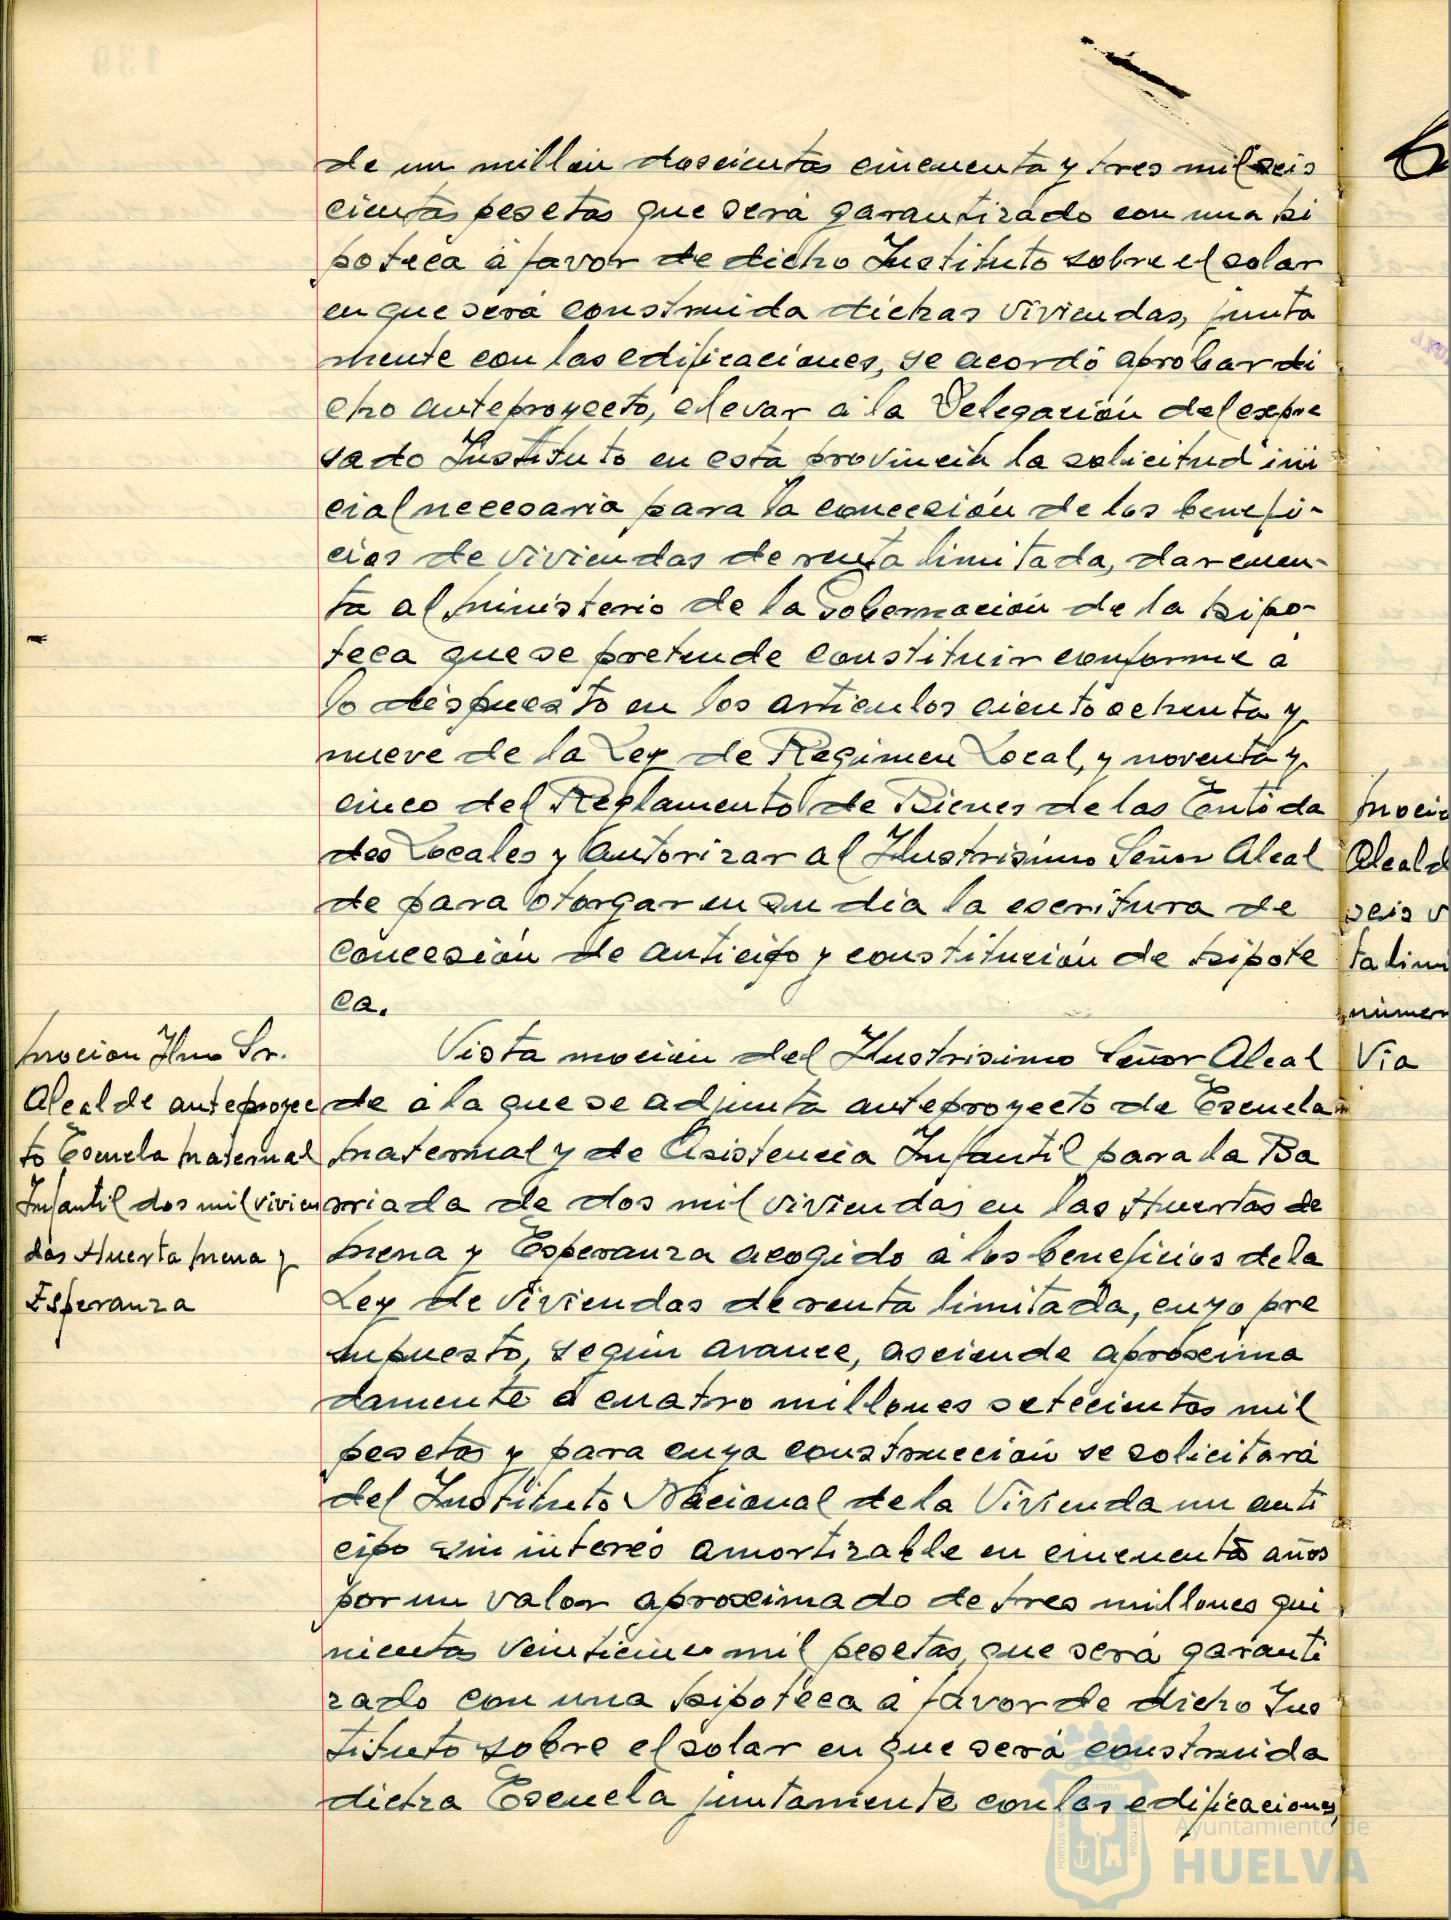 de un millón doscientas cincuenta y tres mil seis
cientas pesetas que será garantizado con una hi
poteca á favor de dicho Instituto sobre el solar
en que será construida dichas viviendas, junta
mente con las edificaciones, se acordó aprobar di
cho anteproyecto, elevar á la Delegación del expre
sado Instituto en esta provincia la solicitud ini
cial necesaria para la concesión de los benefi-
cios de viviendas de renta limitada, dar cuen-
ta al Ministerio de la Gobernación de la hipo-
teca que se pretende constituir conforme á
lo dispuesto en los artículos ciento ochenta y
nueve de la Ley de Regimen Local, y noventa y
cinco del Reglamento de Bienes de las Entida
des Locales y autorizar al Ilustrisimo Señor Alcal
de para otorgar en su día la escritura de
concesión de anticipo y constitución de hipote
ca.
Moción Ilmo Sr.
Alcalde anteproyec
to Escuela Maternal
Infantil dos mil vivien
das Huerta Mena y
Esperanza
Vista moción del Ilustrisimo Señor Alcal
de á la que se adjunta anteproyecto de Escuela
Maternal y de Asistencia Infantil para la Ba
rriada de dos mil viviendas en las Huertas de
Mena y Esperanza acogido á los beneficios de la
Ley de viviendas de renta limitada, cuyo pre
supuesto, según avance, asciende aproxima
damente á cuatro millones setecientas mil
pesetas y para cuya construcción se solicitará
del Instituto Nacional de la Vivienda un anti
cipo sin interés amortizable en cincuenta años
por un valor aproximado de tres millones qui
nientas veinticinco mil pesetas, que será garanti
zado con una hipoteca á favor de dicho Ins
tituto sobre el solar en que será construida
dicha Escuela juntamente con las edificaciones,
Moció
Alcald
seis v
ta limi
númer
Via
Ayuntamiento de
HUELVA